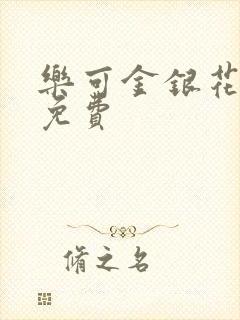 樂可金銀花
免費
脩之名